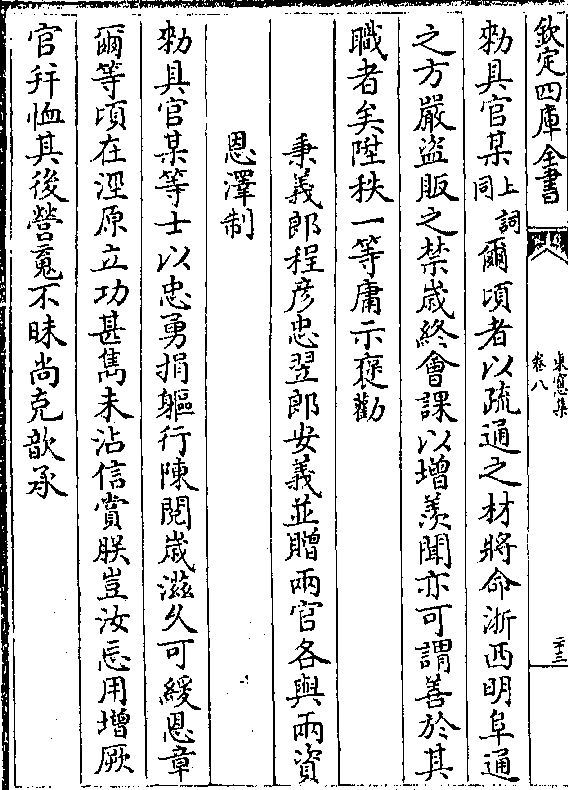 欽定四庫全書
東窻集
卷八
二十三
勑具官某上詞同爾頃者以疏通之材將命浙西明阜通
之方嚴盜販之禁歲終會課以增羨聞亦可謂善於其
職者矣陞秩一等庸示褒勸
秉義郎程彦忠翌郎安義並贈兩官各與兩資
恩澤制
勑具官某等士以忠勇捐軀行陳閲歲滋久可緩恩章
爾等頃在涇原立功甚雋未沾信賞朕豈汝忘用增厥
官幷恤其後營䰟不昧尚克歆承